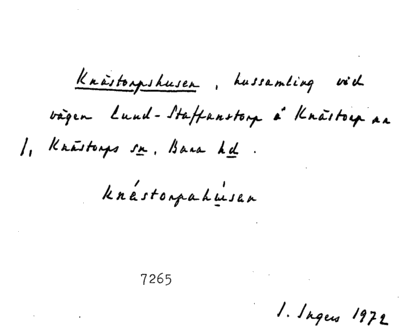 Knästorpshusen, hussamling vid
vägen Lund-Staffanstorp å Knästorp nr
1, Knästorps sn, Bara hd.
knästorpahúsen
7265
I. Ingers 1972